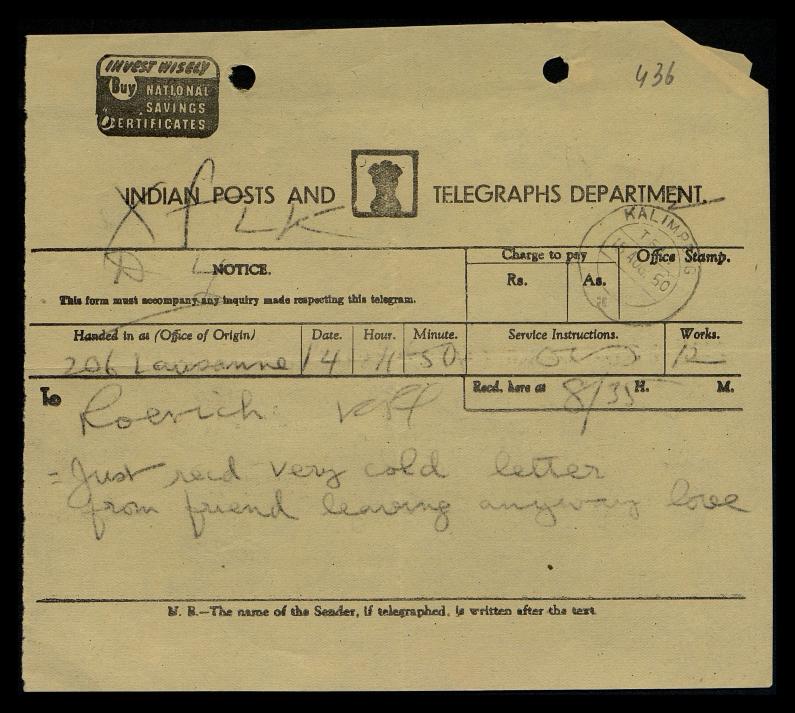 INVEST WISELY
Buy NATIONAL
SAVINGS
CERTIFICATES
436
INDIAN POSTS AND TELEGRAPHS DEPARTMENT.
X
LK
KALIMPONG
AUG 50
NOTICE.
This form must accompany any inquiry made respecting this telegram.
Charge to pay
Rs. As.
Office Stamp.
Handed in at (Office of Origin) Date. Hour. Minute. Service Instructions. Works.
206 Lausanne 14 11 50 12
To Roerich
Recd. here at 8/35 H. M.
= Just recd very cold letter
from friend leaving anyway love
N. B.—The name of the Sender, if telegraphed, is written after the text.